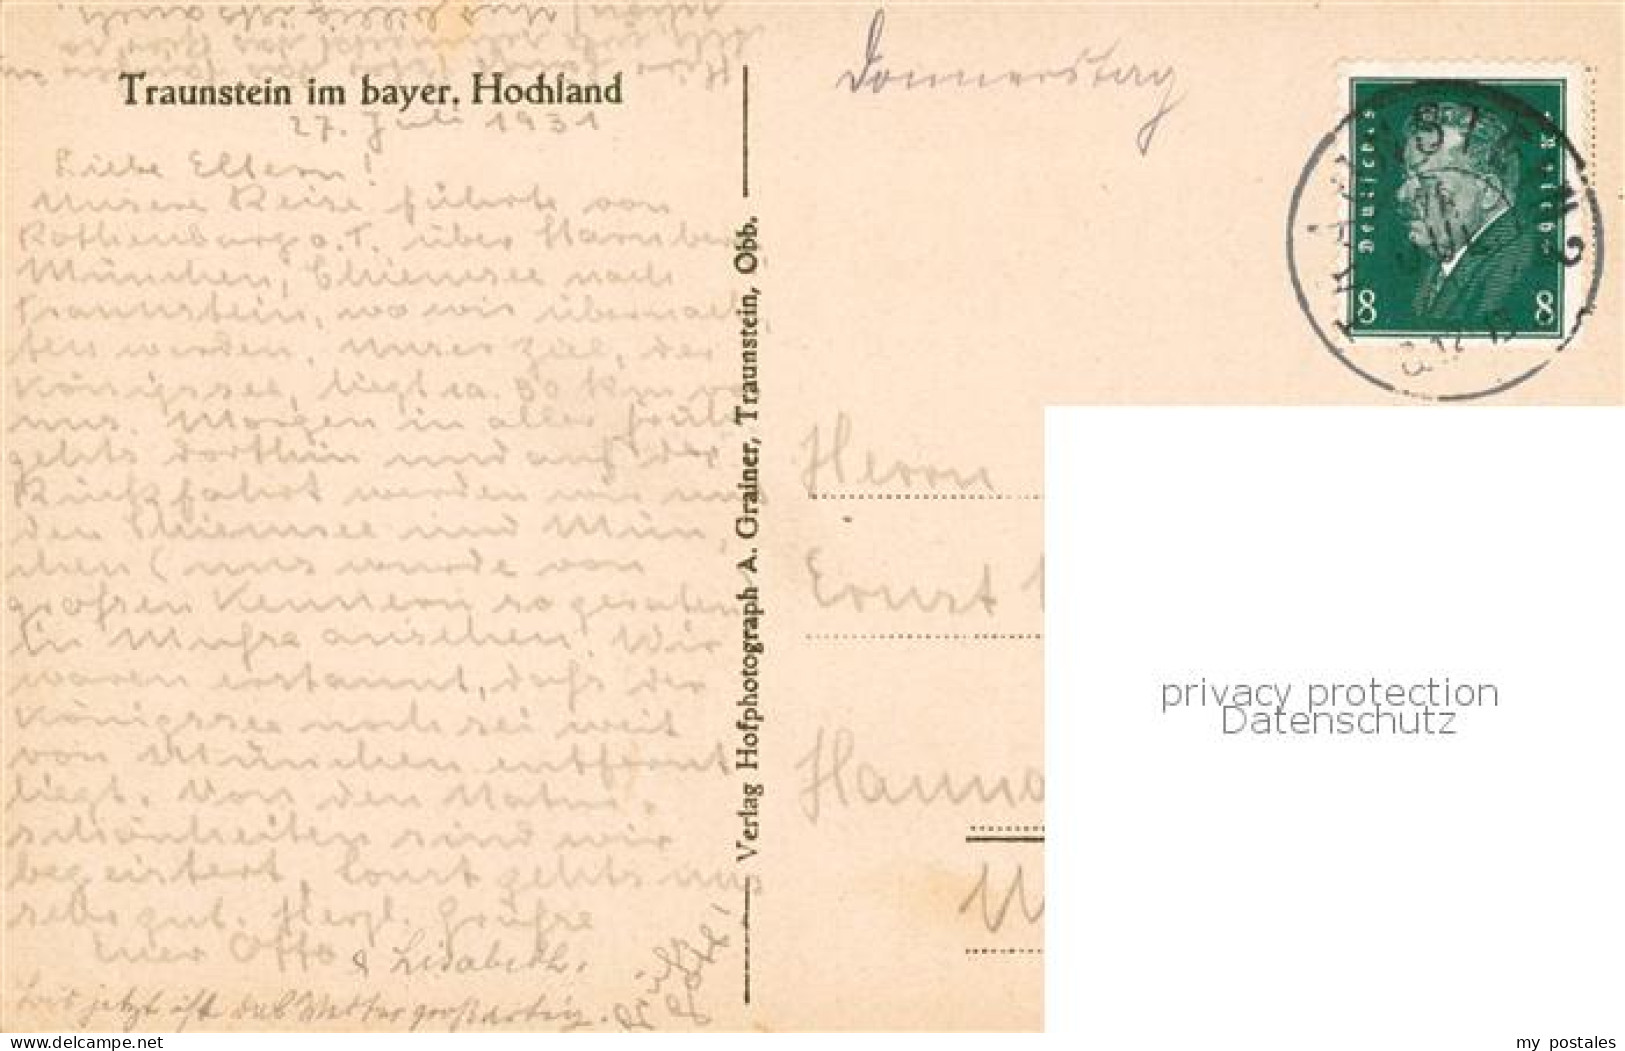 Traunstein im bayer. Hochland
27. Juli 1931
Liebe Eltern!
Unsere Reise führte von
Rothenburg o. T. über Nürnberg
München, Chiemsee nach
Traunstein, wo wir übernach,
ten werden. Unser Ziel, der
Königssee, liegt ca. 50 km von
uns. Morgen in aller Früh
gehts dorthin und auf der
Rückfahrt werden wir uns
den Chiemsee und Mün,
chen (uns wurde von
großen Kennern so geraten
in Muße ansehen. Wir
waren erstaunt, daß der
Königssee noch sei weit
von München entfernt
liegt. Von den Natur,
schönheiten sind wir
begeistert, sonst gehts uns
sehr gut. Herzl. Grüße
Euer Otto
& Lisabeth.
Bis jetzt ist das Wetter großartig.
Verlag Hofphotograph A. Grainer, Traunstein, Obb.
Donnerstag
Deutsches Reich
8 8
TRAUNSTEIN 2
Herrn
Ernst
Hanno
privacy protection
Datenschutz
delcampe.net
my_postales